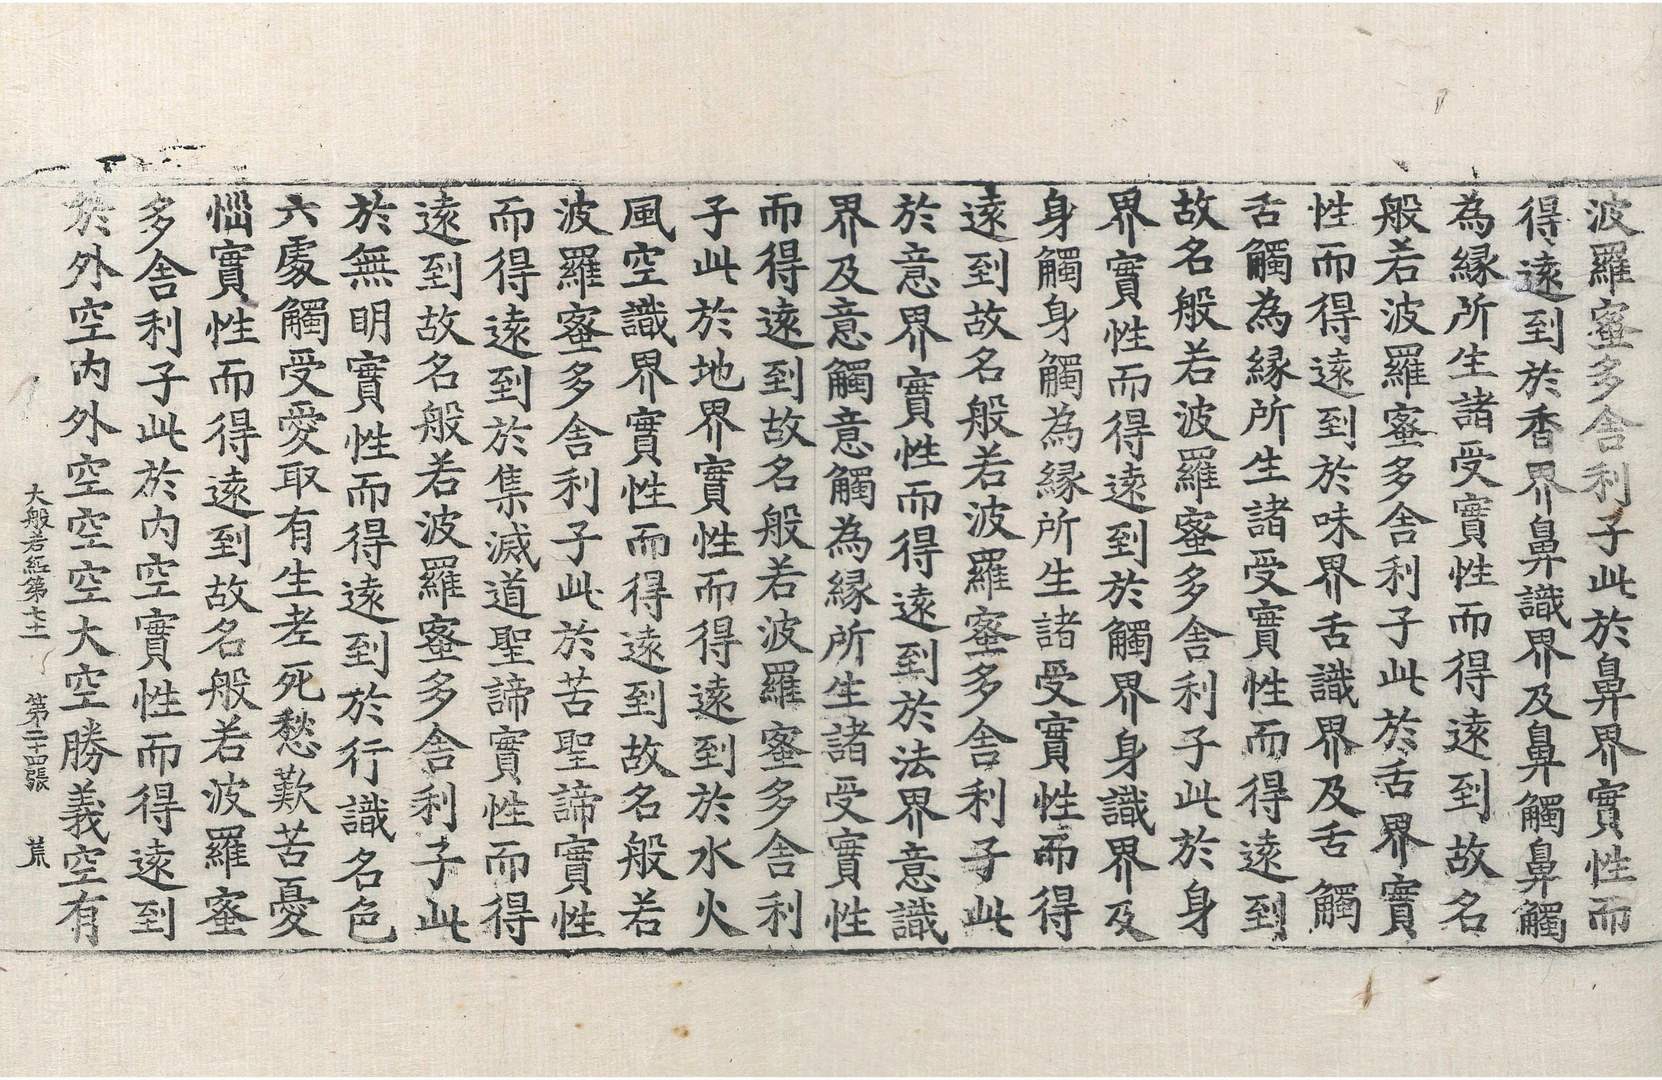 波羅蜜多舍利子此於鼻界實性而
得遠到於香界鼻識界及鼻觸鼻觸
為縁所生諸受實性而得遠到故名
般若波羅蜜多舍利子此於舌界實
性而得遠到於味界舌識界及舌觸
舌觸為縁所生諸受實性而得遠到
故名般若波羅蜜多舍利子此於身
界實性而得遠到於觸界身識界及
身觸身觸為縁所生諸受實性而得
遠到故名般若波羅蜜多舍利子此
於意界實性而得遠到於法界意識
界及意觸意觸為縁所生諸受實性
而得遠到故名般若波羅蜜多舍利
子此於地界實性而得遠到於水火
風空識界實性而得遠到故名般若
波羅蜜多舍利子此於苦聖諦實性
而得遠到於集滅道聖諦實性而得
遠到故名般若波羅蜜多舍利子此
於無明實性而得遠到於行識名色
六處觸受愛取有生老死愁歎苦憂
惱實性而得遠到故名般若波羅蜜
多舍利子此於內空實性而得遠到
於外空內外空空空大空勝義空有
大般若経第七十一 第二十四張 荒